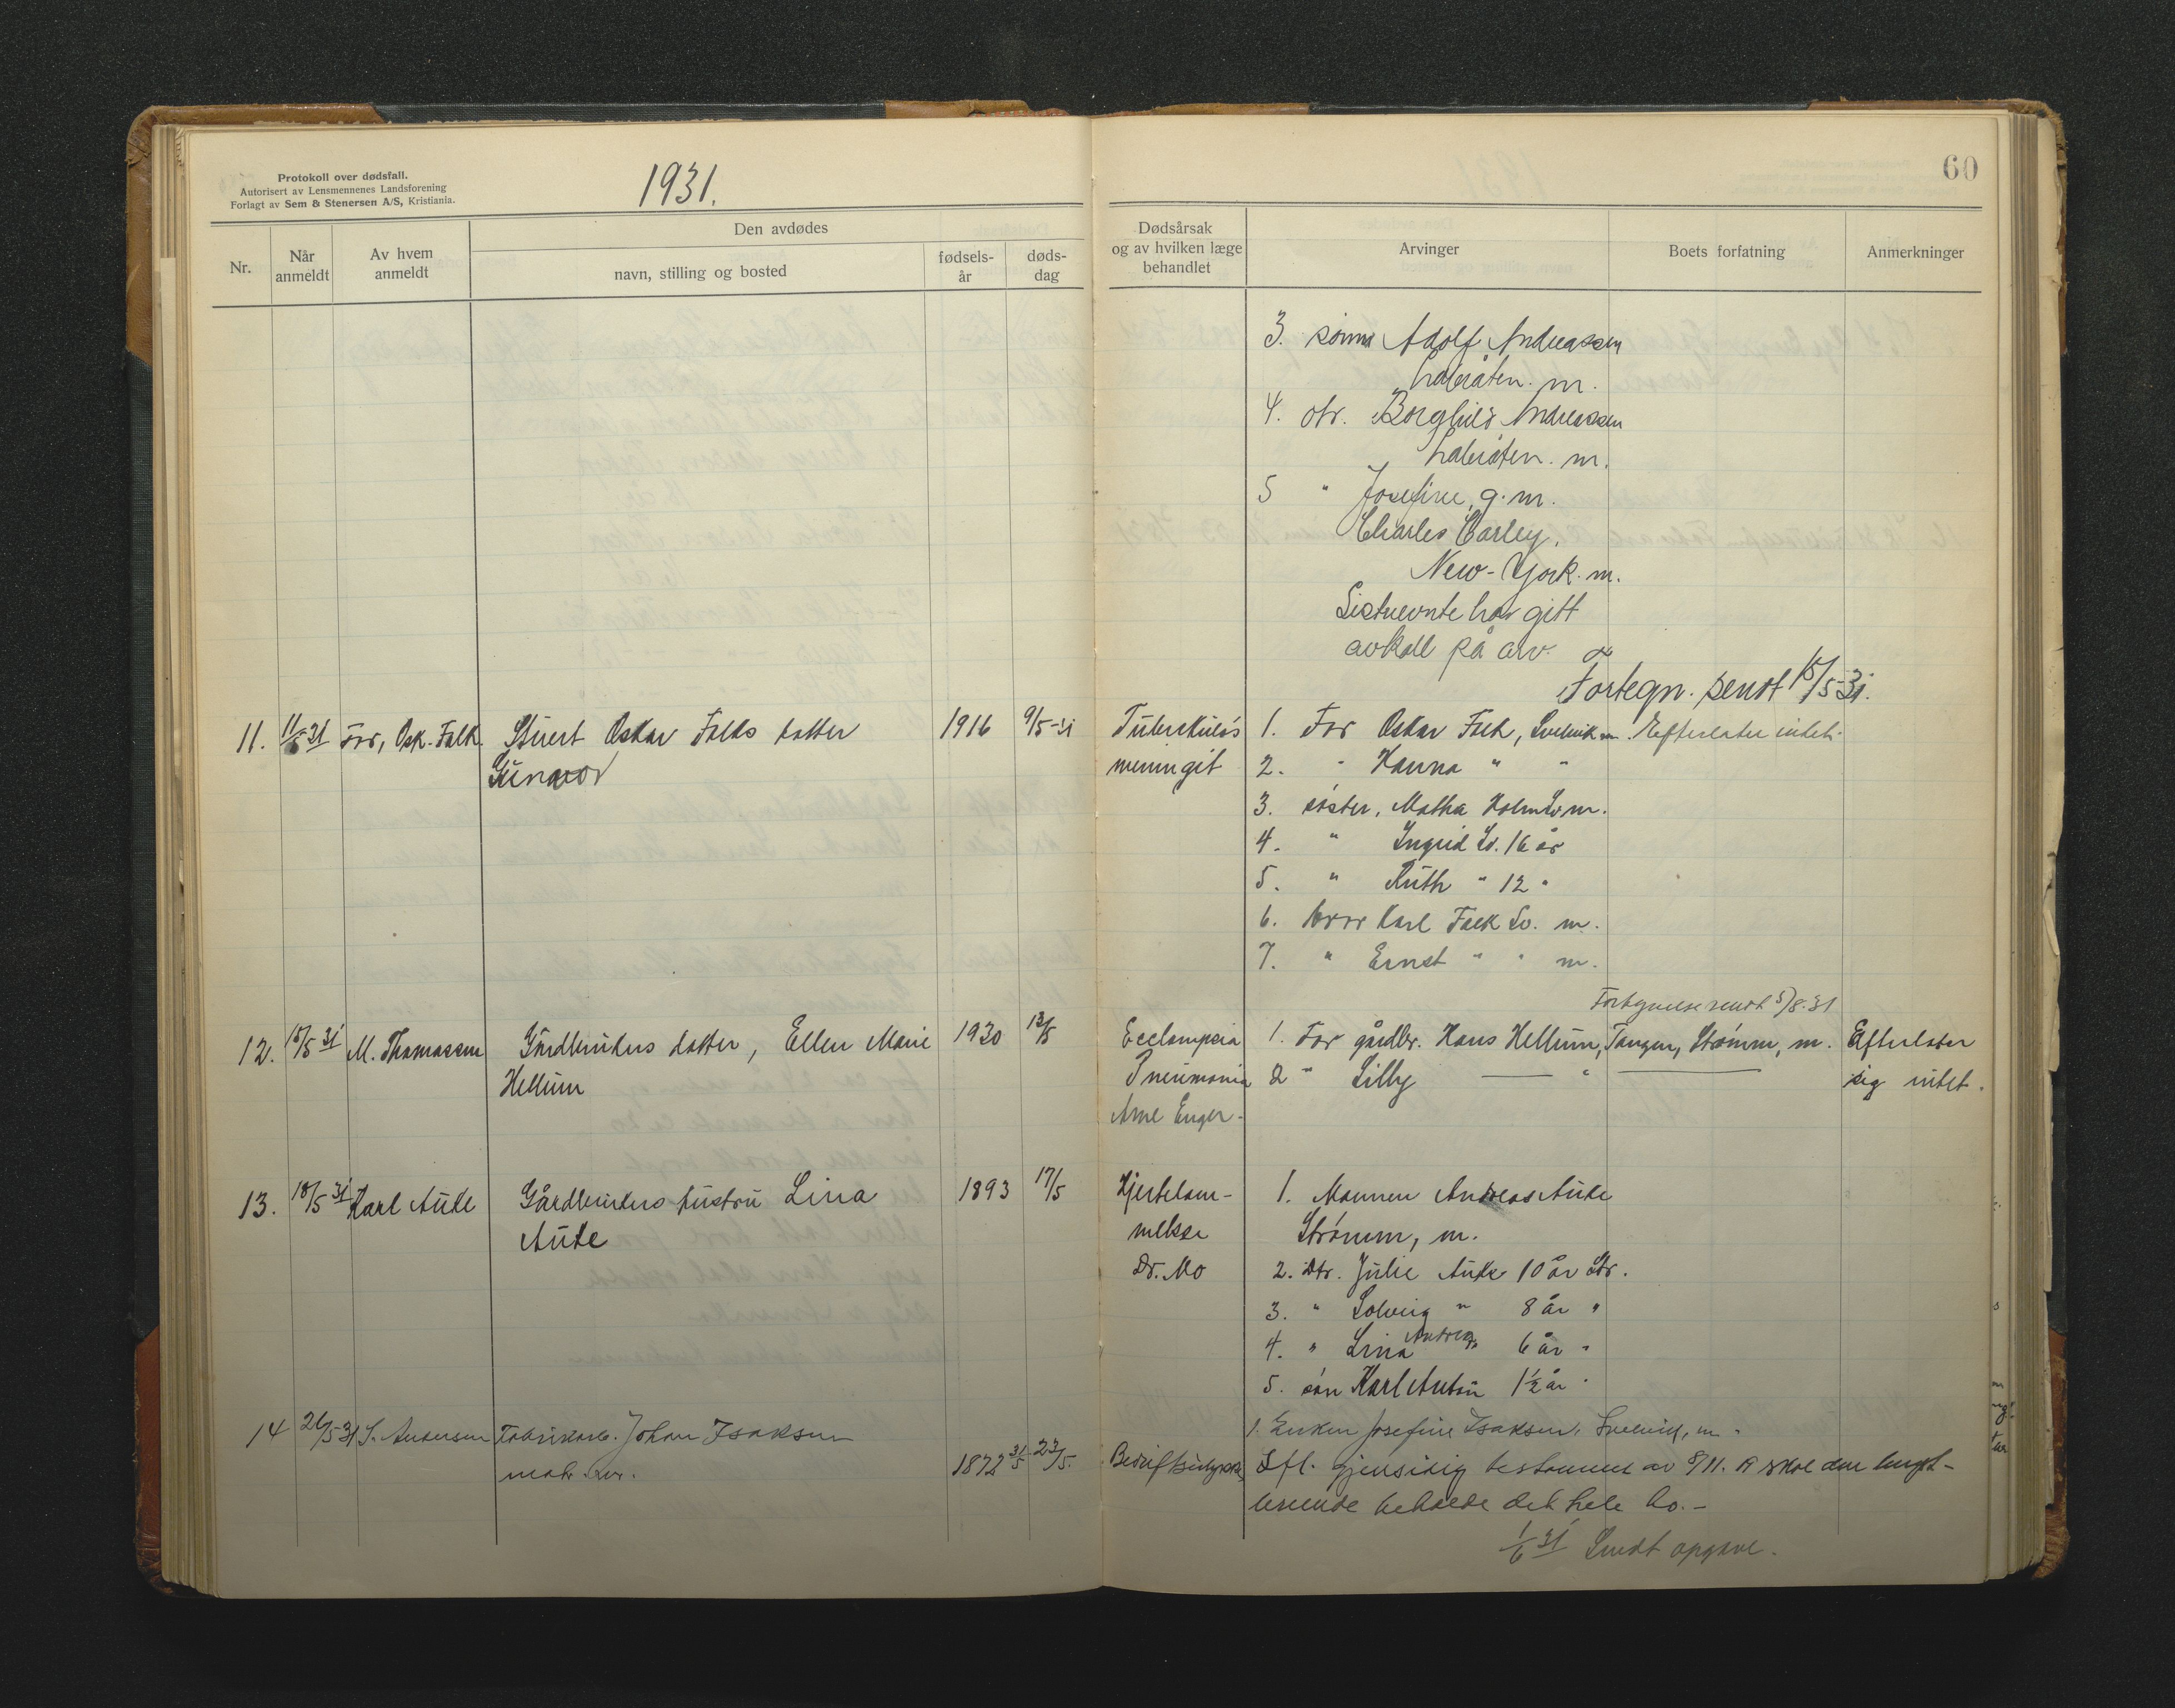 Protokoll over dødsfall.
Autorisert av Lensmennenes Landsforening
Forlagt av Sem & Stenersen A/S, Kristiania.
1931.
60
Nr.
Når anmeldt
Av hvem anmeldt
Den avdødes
navn, stilling og bosted
fødsels-år
døds-dag
Dødsårsak
og av hvilken læge
behandlet
Arvinger
Boets forfatning
Anmerkninger
3. sønn Adolf Andreassen
m.
4. dtr. Borghild Andreassen
m.
5 " Josefine, g. m.
Charles Carley,
New-York. m.
Sistnevnte har gitt
avkall på arv.
Fortegn. sendt 15/5-31.
11. 11/5 31 Far, Osk. Falk. Stuert Oskar Falks datter 1916 9/5-31 Tuberkuløs 1. Far Oskar Falk, Svelvik m. Efterlater intet.
Gunnvor meningit 2. " Hanna " "
3. søster, Martha Holm Sv. m.
4. " Ingrid Sv. 16 år
5. " Ruth " 12 "
6. bror Karl Falk Sv. m.
7. " Ernst " " m.
Fortegnelse sendt 5/8-31
12. 15/5 31 M. Thomassen Gårdbrukers datter, Ellen Marie 1930 13/5 Ecclampsia 1. Far gårdbr. Hans Hellum, Tangen, Strømm, m. Efterlater
Hellum Pneumonia 2 " Lilly — " — sig intet.
Arne Enger.
13. 18/5 31 Karl Auke Gårdbrukers hustru Lina 1893 17/5 Hjertelam- 1. Mannen Andreas Auke
Auke melse Strømm, m.
Dr. Mo 2. Dtr. Julie Auke 10 år Str.
3. " Solveig " 8 år "
4. " Lina Andrea " 6 år "
5. søn Karl Anton 1½ år "
14 26/5 31 S. Andersen Fabrikarb. Johan Isaksen 1. Enken Josefine Isaksen, Svelvik, m.
1872 31/5 23/5. Efl. gjensidig testamente av 8/11. 19 skal den lengst-
levende beholde det hele bo.-
1/6 31 Sendt opgave.